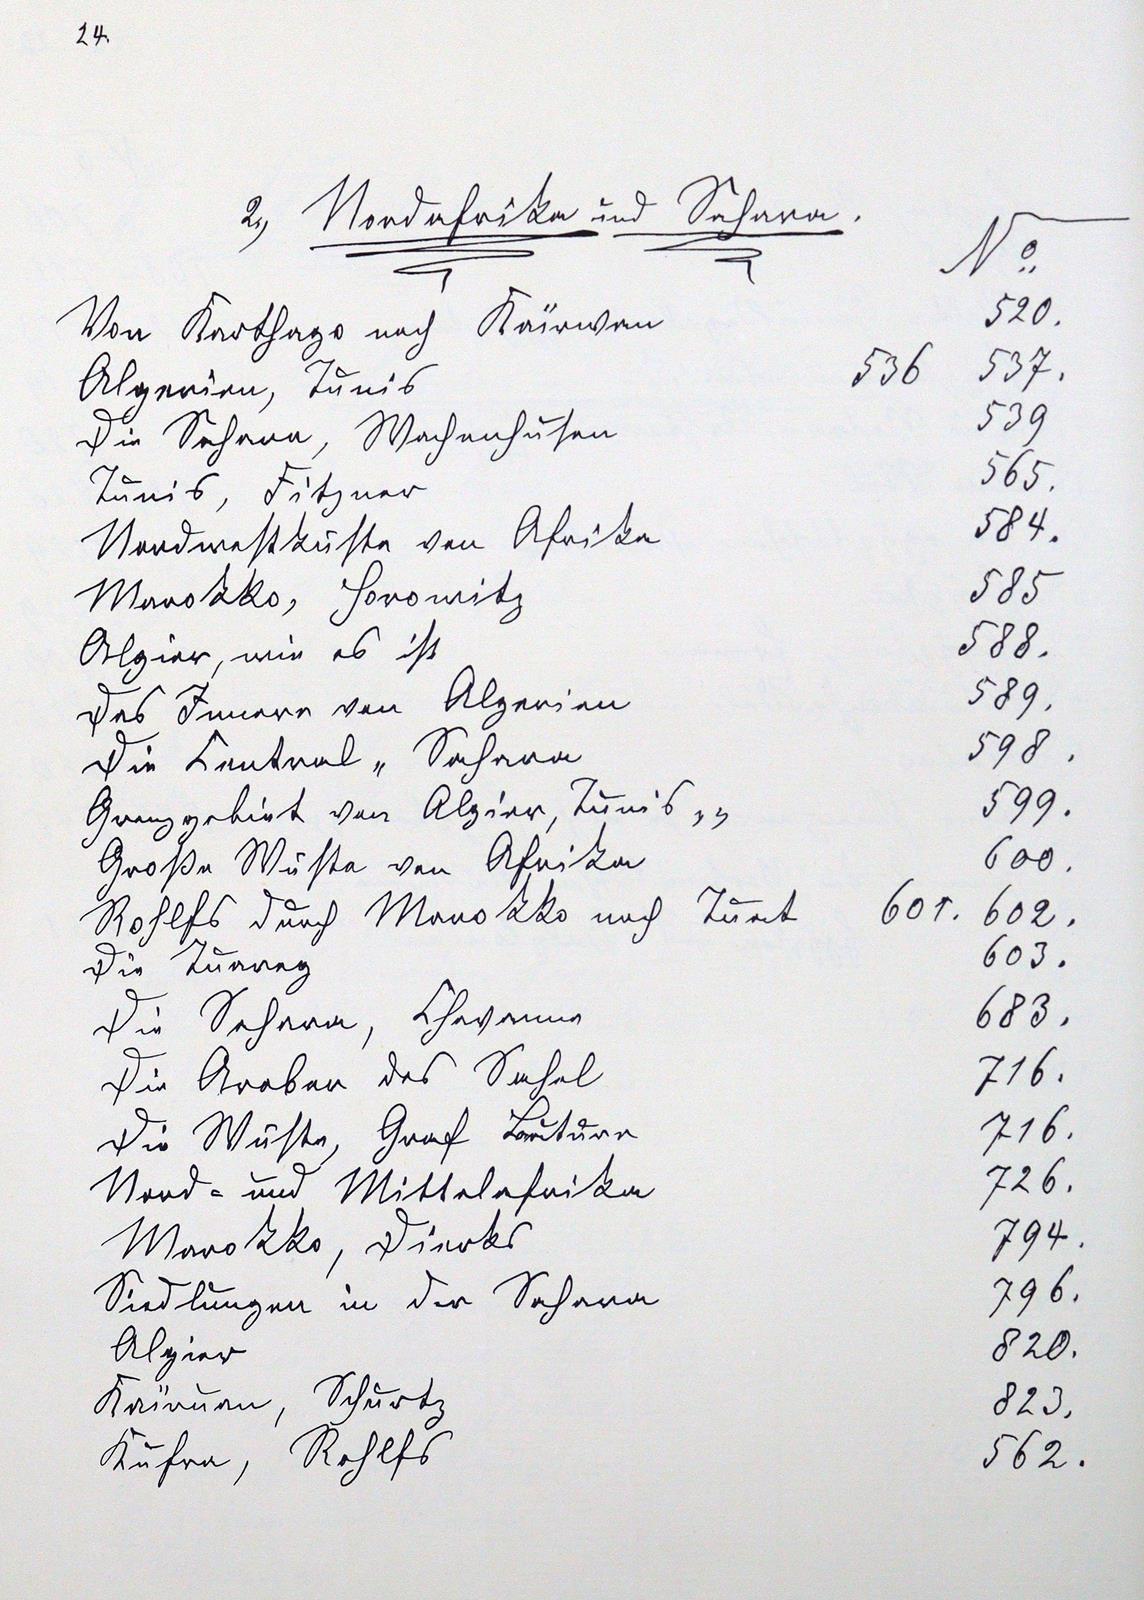 24.
2., Nordafrika und Sahara.
No.
Von Karthago nach Kaïrwan 520.
Algerien, Tunis 536 537.
Die Sahara, Wachenhusen 539
Tunis, Fitzner 565.
Nordwestküste von Afrika 584.
Marokko, Horowitz 585
Algier, wie es ist 588.
Das Innere von Algerien 589.
Die Central „ Sahara 598.
Grenzgebiet von Algier, Tunis „ 599.
Große Wüste von Afrika 600.
Rohlfs durch Marokko nach Tuat 601. 602.
Die Tuareg 603.
Die Sahara, Chavanne 683.
Die Araber des Sahel 716.
Die Wüste, Graf 716.
Nord- und Mittelafrika 726.
Marokko, Dierks 794.
Siedlungen in der Sahara 796.
Algier 820.
Kaïruan, Schurtz 823.
Kufra, Rohlfs 562.